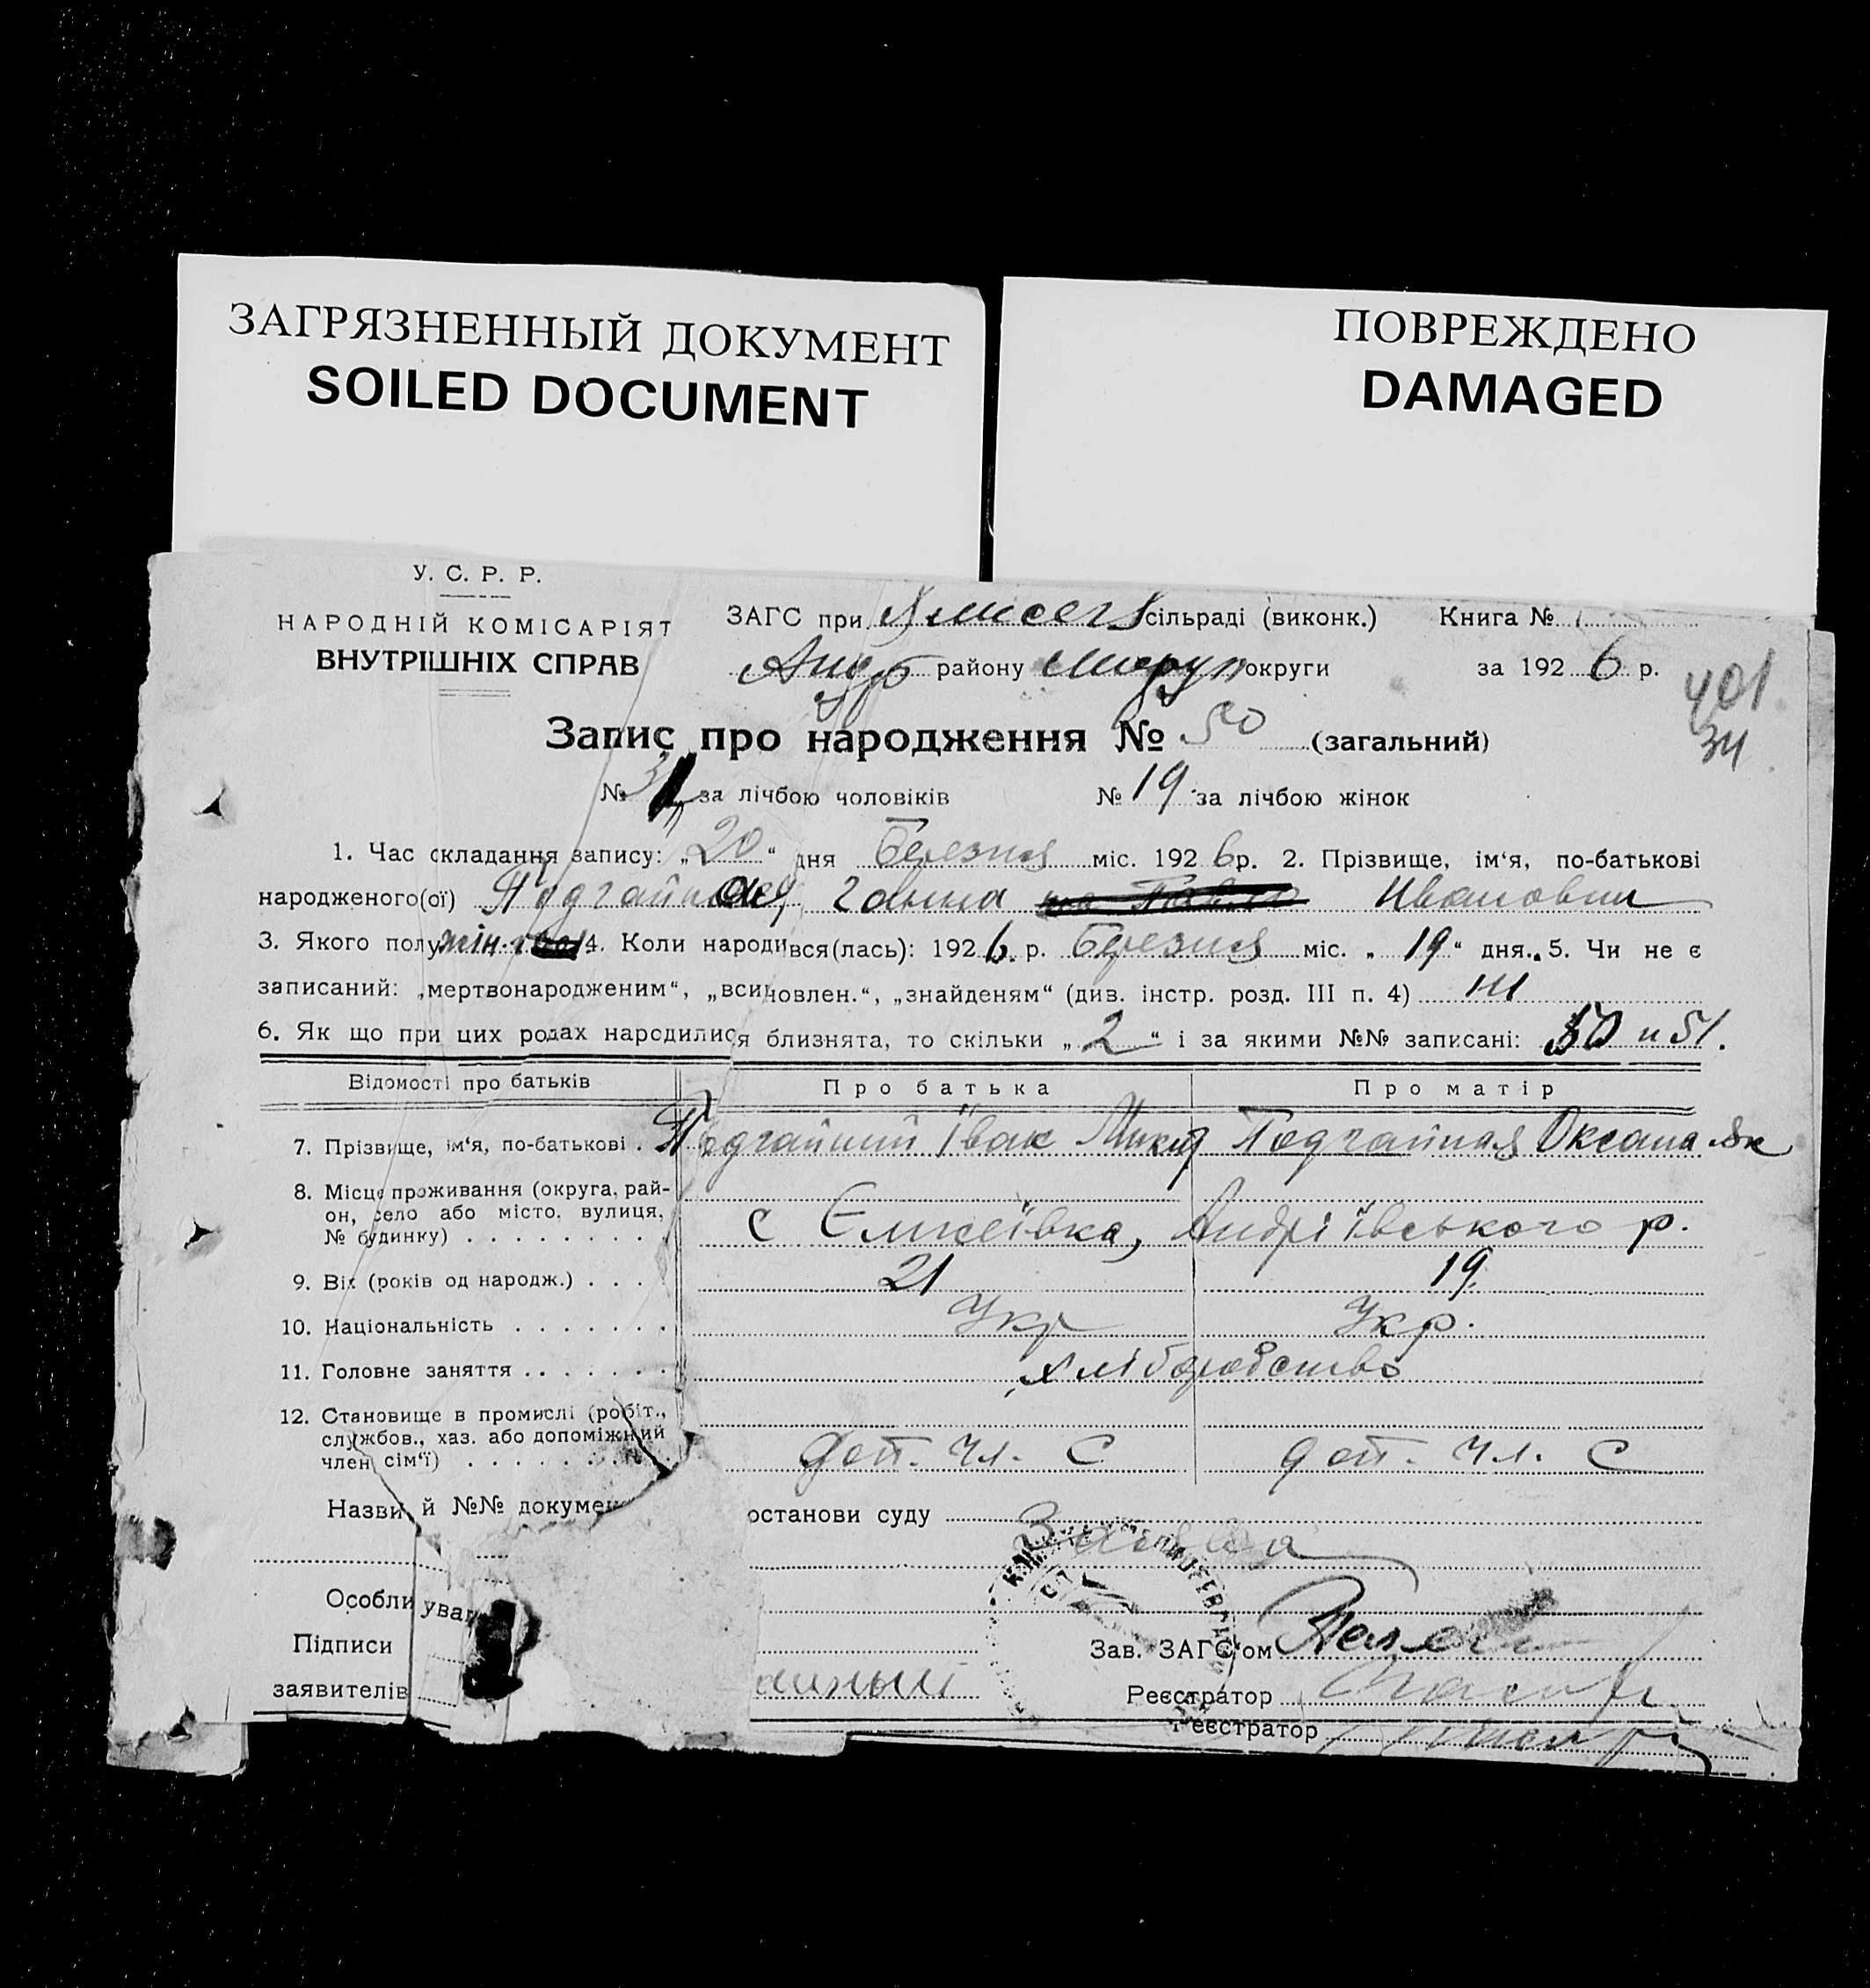 ЗАГРЯЗНЕННЫЙ ДОКУМЕНТ
SOILED DOCUMENT
ПОВРЕЖДЕНО
DAMAGED
У. С. Р. Р.
НАРОДНІЙ КОМІСАРІЯТ
ВНУТРІШНІХ СПРАВ
ЗАГС при сільраді (виконк.) Книга №
району округи за 1926 р.
401
34
Запис про народження № 50 (загальний)
№ за лічбою чоловіків № 19 за лічбою жінок
1. Час складання запису: „20“ дня Березня міс. 1926 р. 2. Прізвище, ім‘я, по-батькові
народженого(ої) Ганна Ивановни
3. Якого полу жін. 4. Коли народився(лась): 1926 р. Березня міс. „19“ дня. 5. Чи не є
записаний: „мертвонародженим“, „всиновлен.“, „знайденям“ (див. інстр. розд. III п. 4)
6. Як що при цих родах народилися близнята, то скільки „2“ і за якими №№ записані: 50 и 51.
Відомості про батьків Про батька Про матір
7. Прізвище, ім‘я, по-батькові . Подгайний Іван Подгайная Оксана
8. Місце проживання (округа, рай-
он, село або місто, вулиця,
№ будинку) . . . . . . . . . с Єлисеївка, Андріївського р.
9. Вік (років од народж.) . . . 21 19.
10. Національність . . . . . . . Укр Укр.
11. Головне заняття . . . . . . . хліборобство
12. Становище в промислі (робіт.,
службов., хаз. або допоміжний
член сім‘ї) . . . . . . . . . . доп. чл. С доп. чл. С
Назви й №№ докумен останови суду
Заява
Особли уваг
Підписи Зав. ЗАГС‘ом
заявителів Реєстратор
Реєстратор